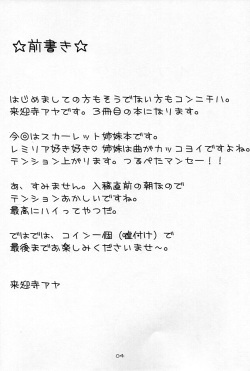 ☆前書き☆
はじめましての方もそうでない方もコンニチハ。
来迎寺アヤです。３冊目の本になります。
今回はスカーレット姉妹本です。
レミリア好き好き♡ 姉妹は曲がカッコヨイですよね。
テンション上がります。つるぺたマンセー！！
あ、すみません。入稿直前の朝なので
テンションおかしいですね。
最高にハイってやつだ。
ではでは、コイン一個（嘘付け）で
最後までお楽しみくださいませ～。
来迎寺アヤ
04